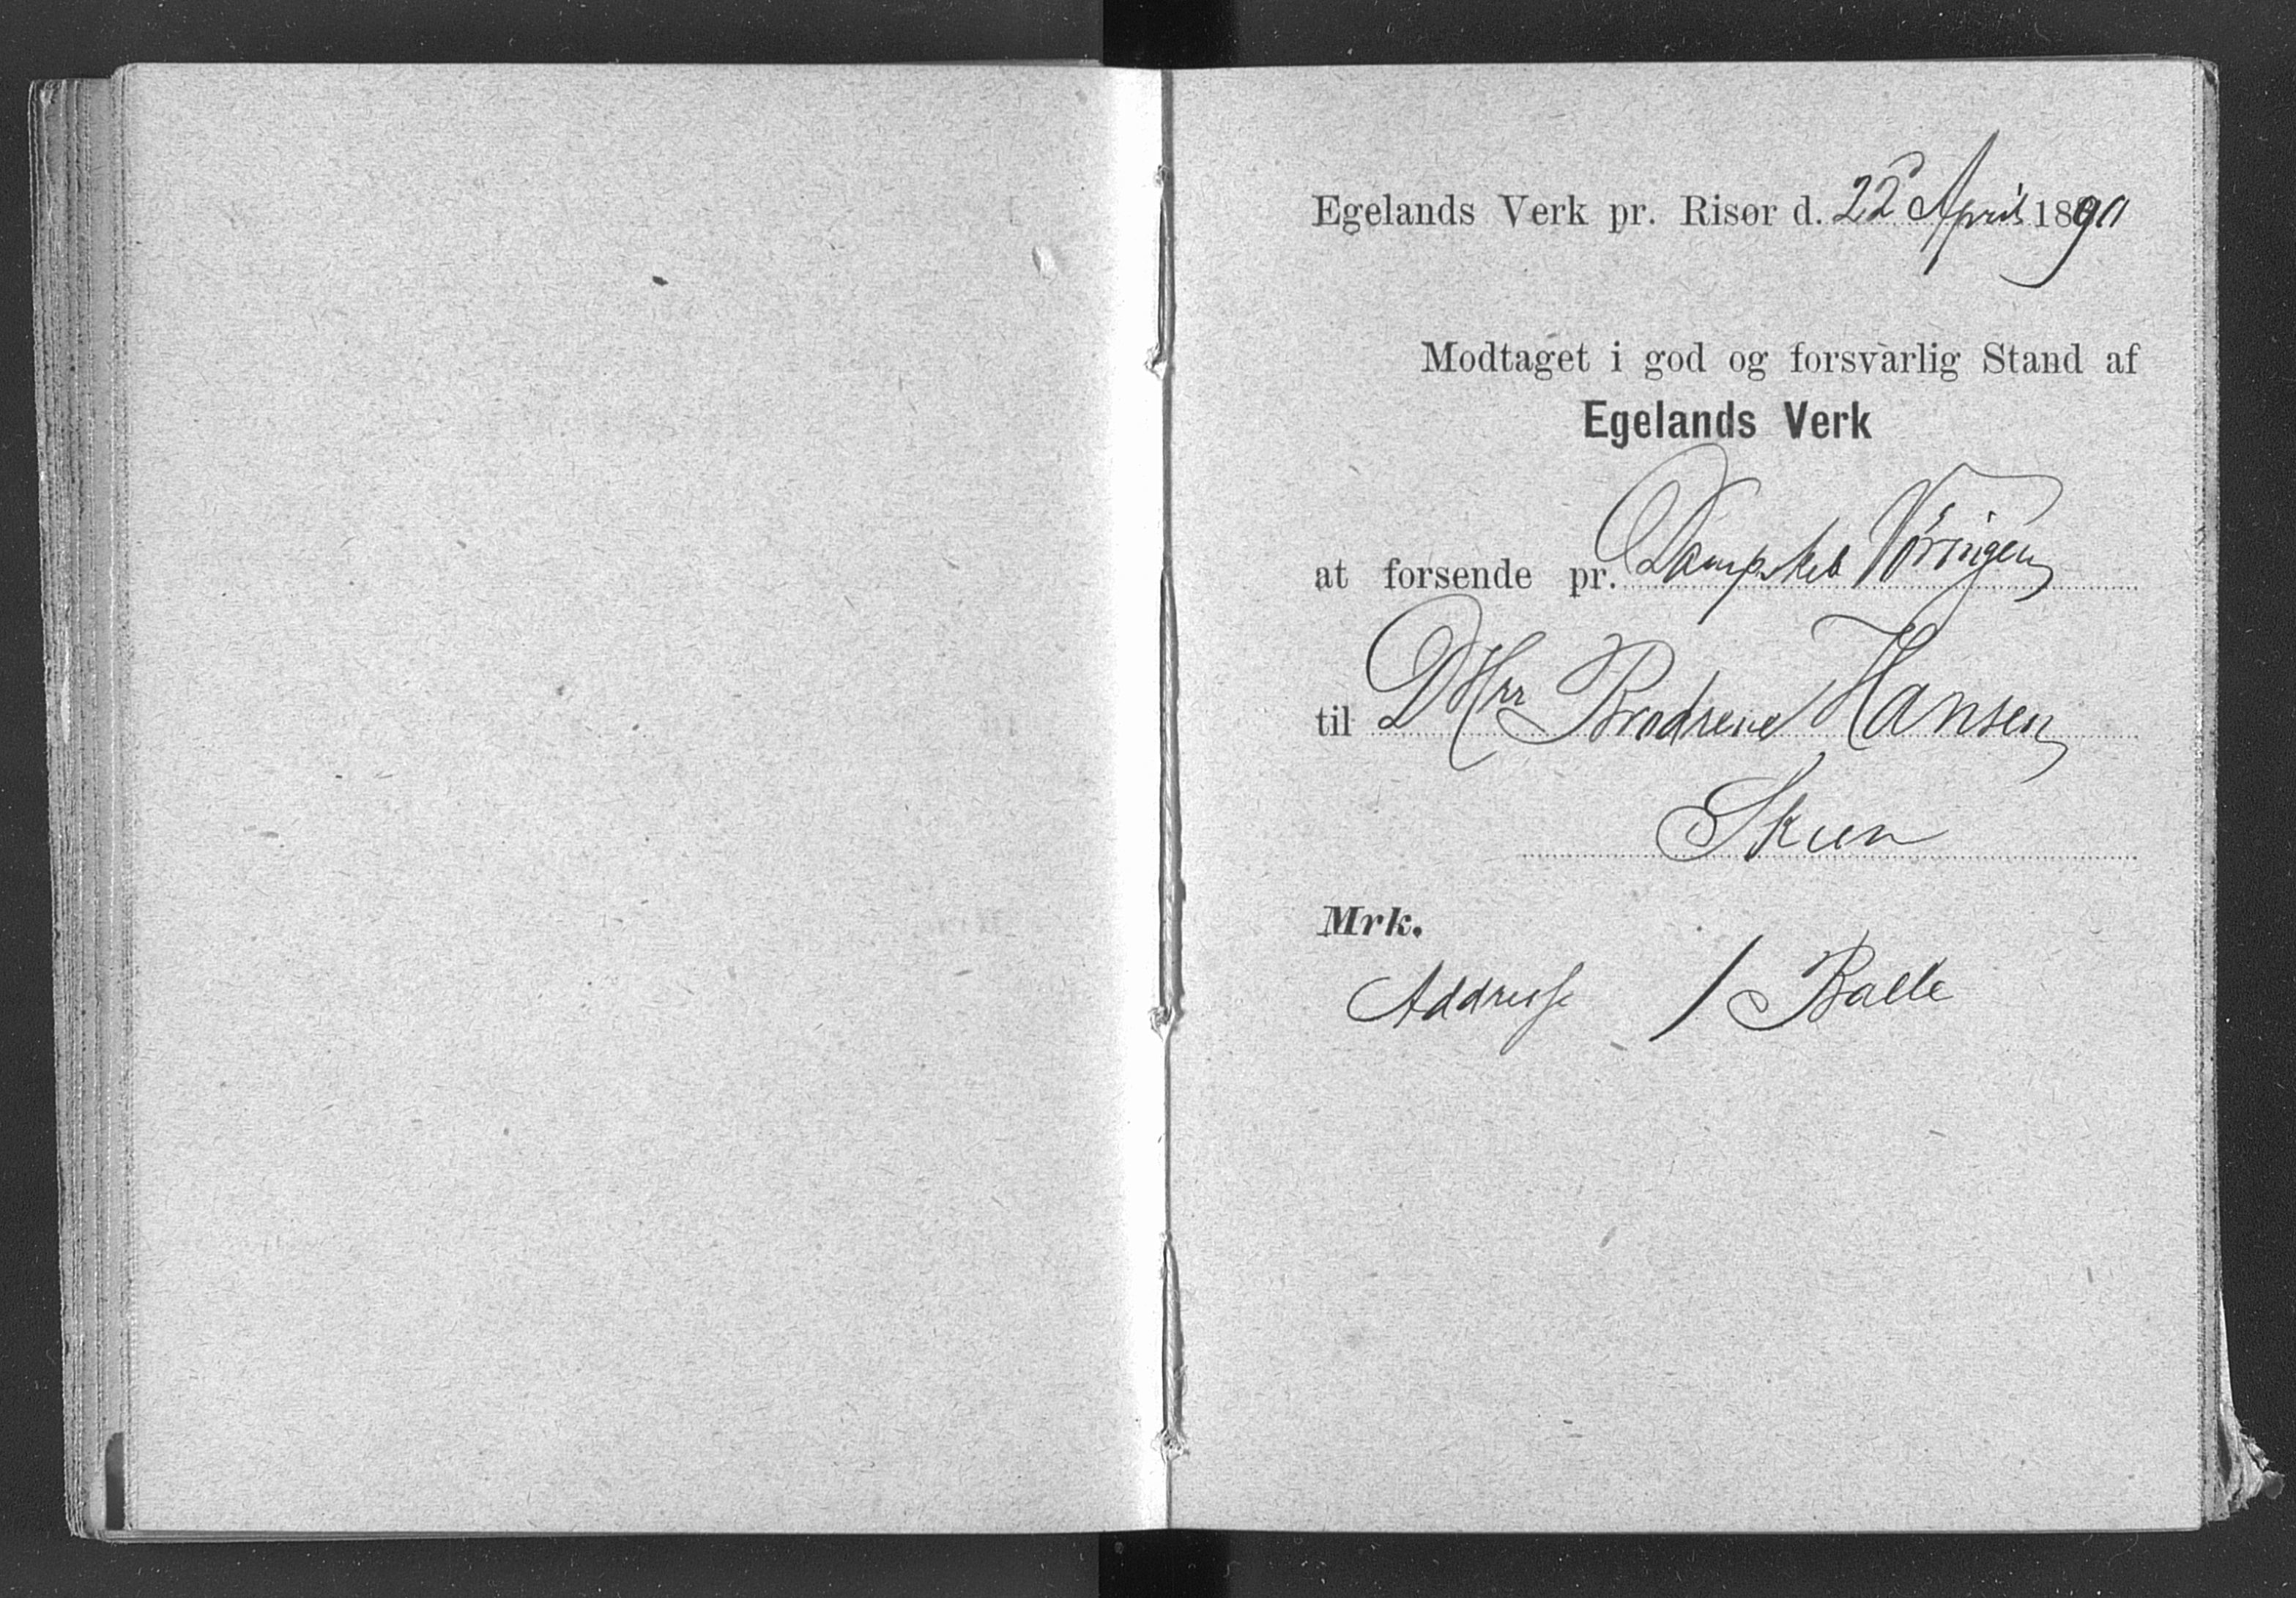 Egelands Verk pr. Risør d. 22 April 1890
Modtaget i god og forsvarlig Stand af
Egelands Verk
at forsende pr. Dampskib Vøringen
til DHrr Brødrene Hansen
Skien
Mrk.
Addresse / Balle